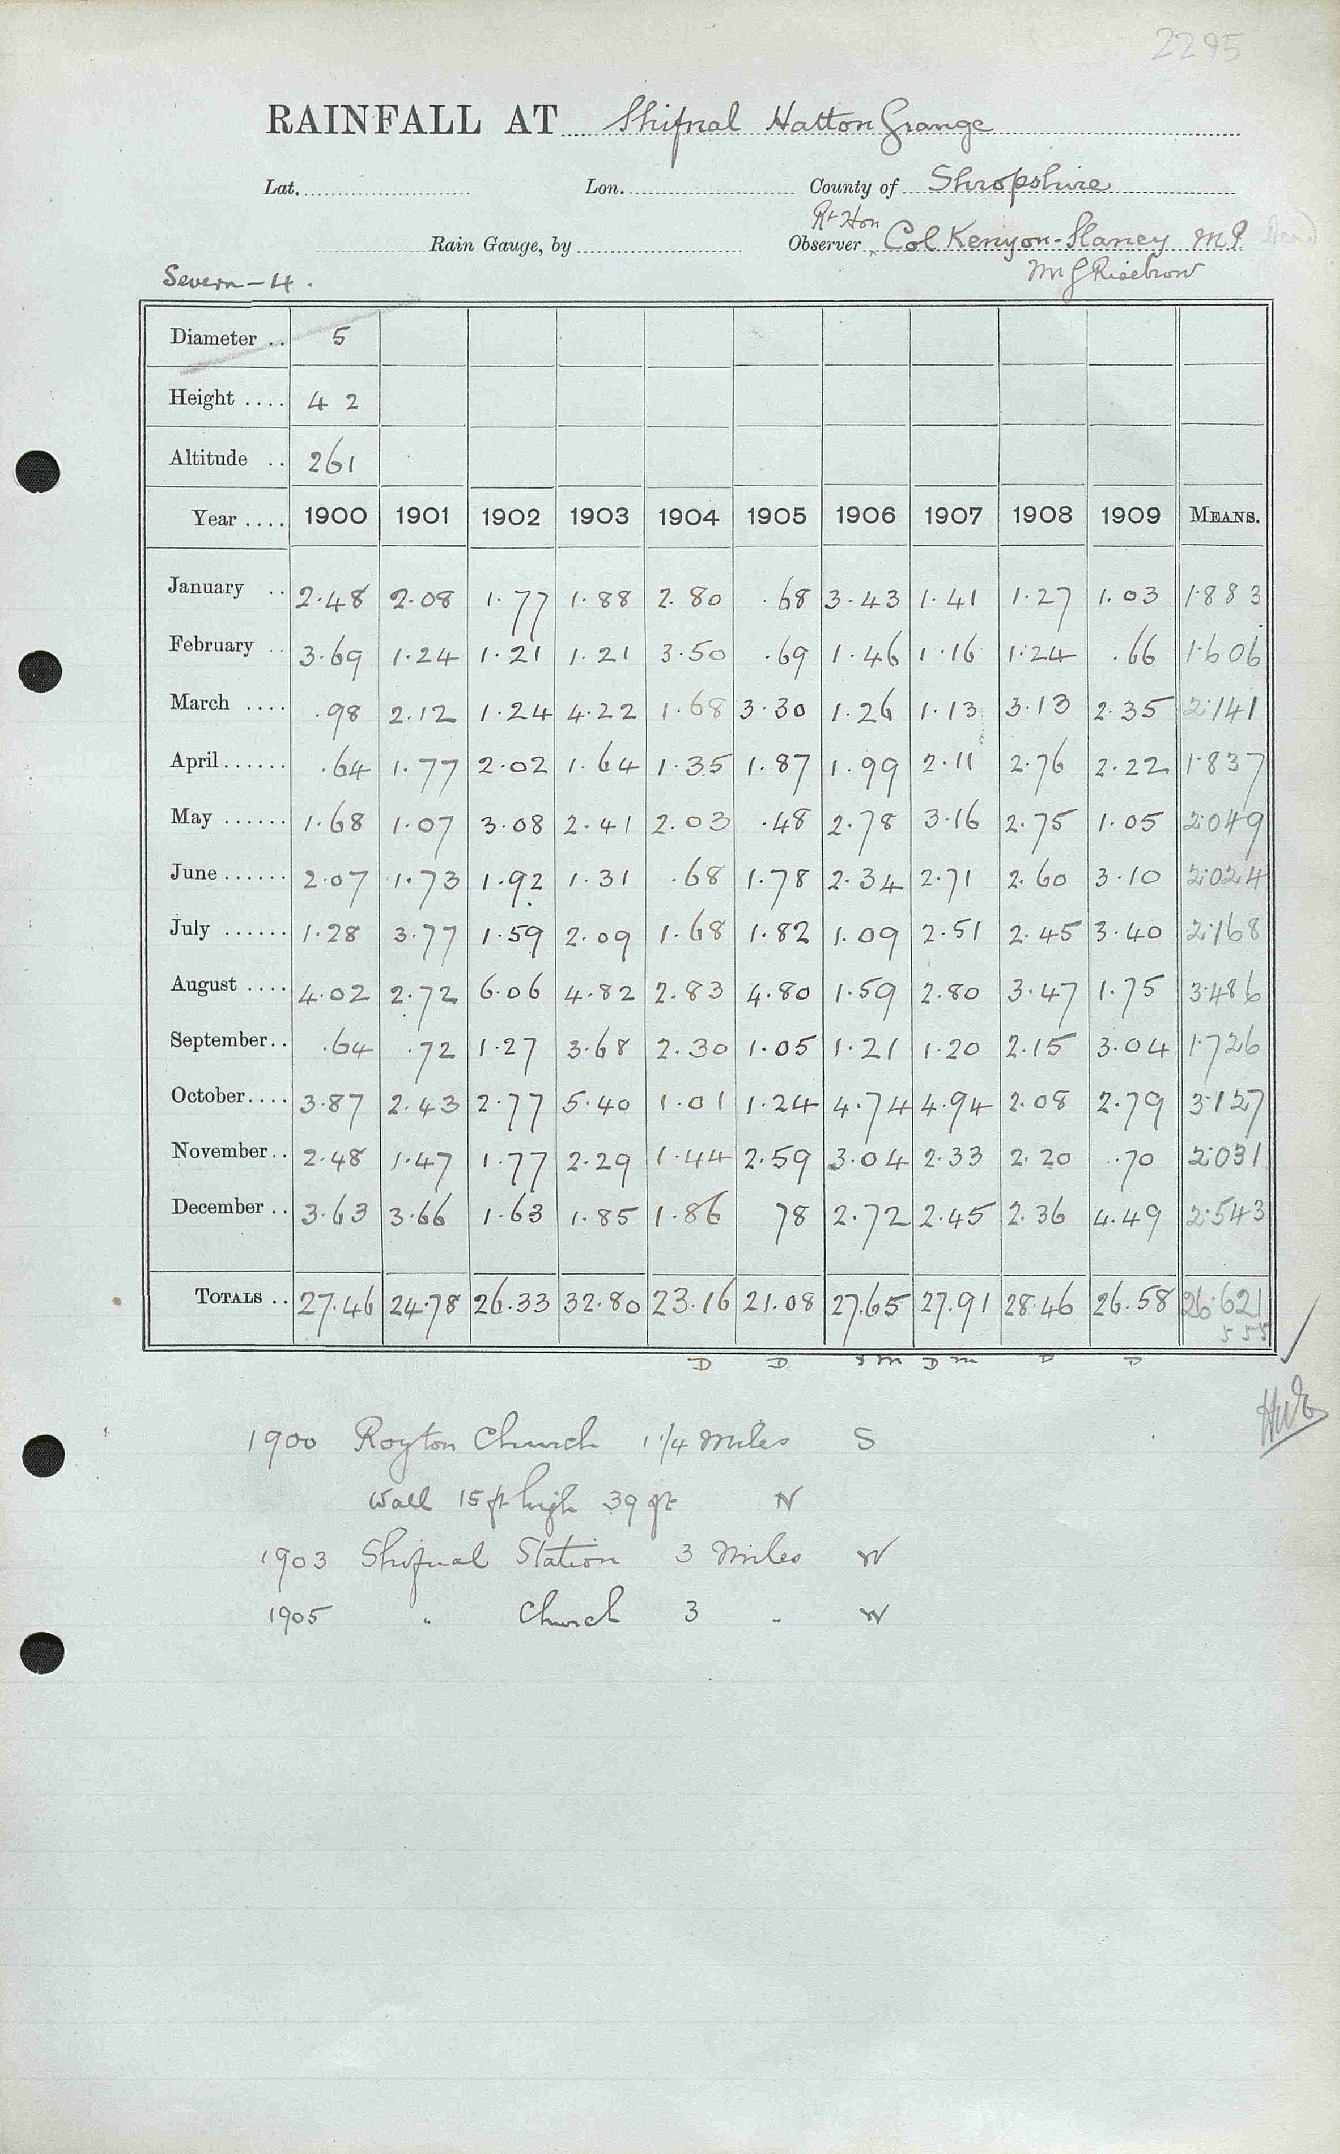 2295
RAINFALL AT Shifnal Hatton Grange
Lat. Lon. County of Shropshire
Rt Hon
Rain Gauge, by Observer Col Kenyon-Slaney M.P.
Severn-4. Mr G Risebrow
Diameter .. 5
Height .... 4 2
Altitude .. 261
Year .... 1900 1901 1902 1903 1904 1905 1906 1907 1908 1909 MEANS.
January .. 2.48 2.08 1.77 1.88 2.80 .68 3.43 1.41 1.27 1.03 1.883
February .. 3.69 1.24 1.21 1.21 3.50 .69 1.46 1.16 1.24 .66 1.606
March .... .98 2.12 1.24 4.22 1.68 3.30 1.26 1.13 3.13 2.35 2.141
April ...... .64 1.77 2.02 1.64 1.35 1.87 1.99 2.11 2.76 2.22 1.837
May ...... 1.68 1.07 3.08 2.41 2.03 .48 2.78 3.16 2.75 1.05 2.049
June ...... 2.07 1.73 1.92 1.31 .68 1.78 2.34 2.71 2.60 3.10 2.024
July ...... 1.28 3.77 1.59 2.09 1.68 1.82 1.09 2.51 2.45 3.40 2.168
August .... 4.02 2.72 6.06 4.82 2.83 4.80 1.59 2.80 3.47 1.75 3.486
September.. .64 .72 1.27 3.68 2.30 1.05 1.21 1.20 2.15 3.04 1.726
October.... 3.87 2.43 2.77 5.40 1.01 1.24 4.74 4.94 2.08 2.79 3.127
November.. 2.48 1.47 1.77 2.29 1.44 2.59 3.04 2.33 2.20 .70 2.031
December .. 3.63 3.66 1.63 1.85 1.86 78 2.72 2.45 2.36 4.49 2.543
TOTALS .. 27.46 24.78 26.33 32.80 23.16 21.08 27.65 27.91 28.46 26.58 26.621
555
D D m D m D D
1900 Royton Church 1 1/4 Miles S
Wall 15 ft high 39 ft N
1903 Shifnal Station 3 Miles W
1905 " Church 3 " W